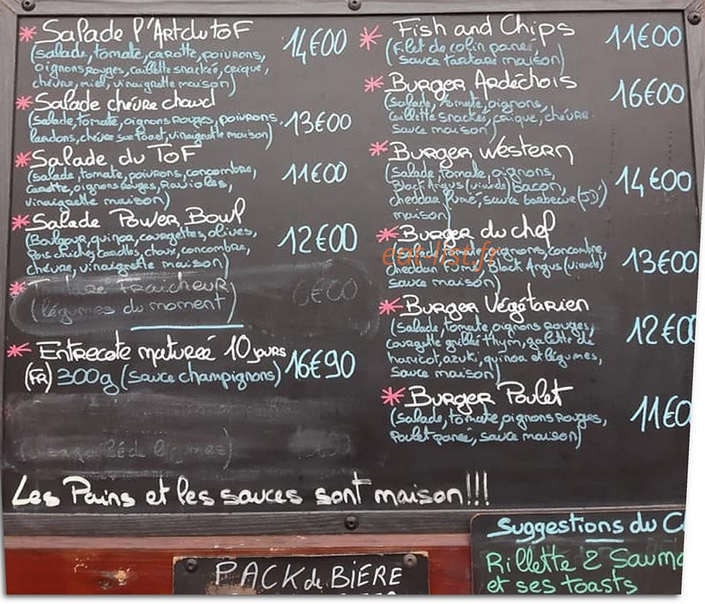 * Salade l'Art du ToF 14€00
(salade, tomate, carotte, poivrons,
oignons rouges, caillette snackée, crique,
chèvre, miel, vinaigrette maison)
* Salade chèvre chaud 13€00
(salade, tomate, oignons rouges, poivrons,
lardons, chèvre sur toast, vinaigrette maison)
* Salade du ToF 11€00
(salade, tomate, poivrons, concombre,
carotte, oignons rouges, Ravioles,
vinaigrette maison)
* Salade Power Bowl 12€00
(Boulgour, quinoa, courgettes, olives,
pois chiches, choux, concombre,
chèvre, vinaigrette maison)
Fraicheur 6€00
(légumes du moment)
* Entrecote maturée 10 jours
(FR) 300g (sauce champignons) 16€90
Les Pains et les sauces sont maison!!!
* Fish and Chips 11€00
(Filet de colin pané
sauce tartare maison)
* Burger Ardéchois 16€00
(salade, tomate, oignons,
caillette snackée, crique, chèvre
sauce maison)
* Burger Western 14€00
(Salade, tomate, oignons,
Black Angus (viande) Bacon,
cheddar fumé, sauce barbecue (JD')
maison)
* Burger du chef 13€00
oignons, concombre,
cheddar Black Angus (viande)
sauce maison)
eat-list.fr
* Burger Végétarien 12€0
(salade, tomate, oignons rouges,
courgette grillée thym, galette de
haricot, azuki, quinoa et légumes,
sauce maison)
* Burger Poulet 11€0
(salade, tomate, oignons rouges,
Poulet pané, sauce maison)
Suggestions du C
Rillette 2 Saumo
et ses toasts
PACK de BIÈRE